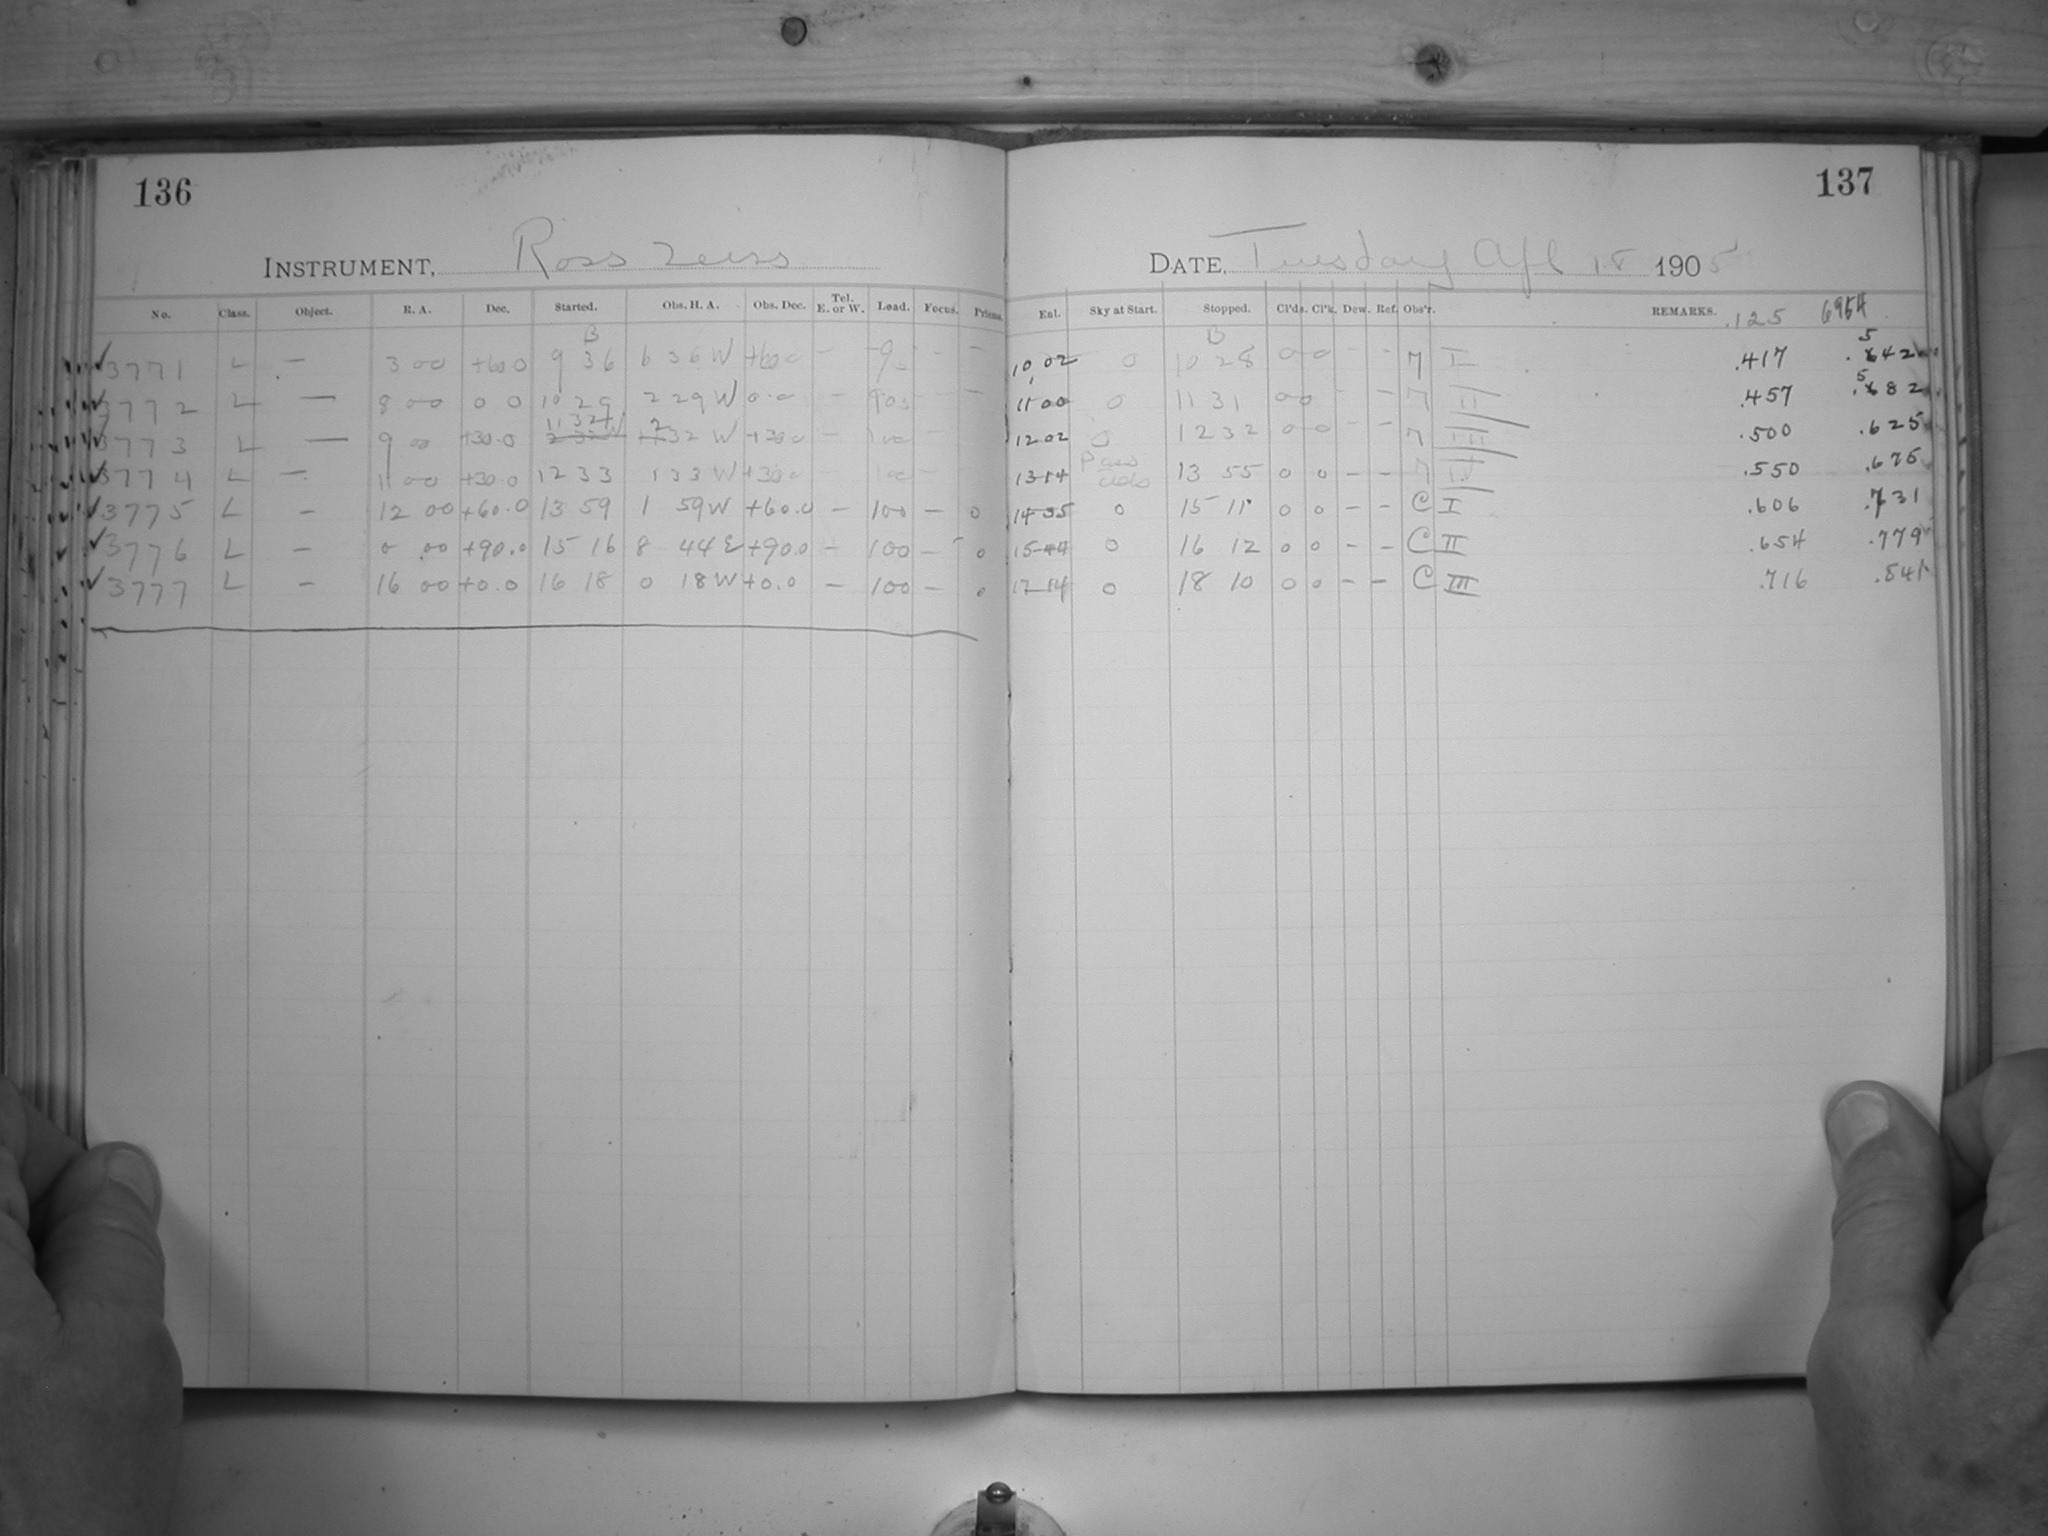 136
137
INSTRUMENT, Ross Zeiss
DATE, Tuesday Apl 18 1905
No. Class. Object. R. A. Dec. Started. Obs. H. A. Obs. Dec. Tel. E. or W. Load. Focus. Prisms. Enl. Sky at Start. Stopped. Cl'ds. Cl'k. Dew. Ref. Obs'r. REMARKS. .125 6954
B B
3771 L — 3 00 +60 0 9 36 6 36 W +60 0 — — — 10,02 0 10 28 0 0 - - 7 I .417 .542
3772 L — 8 00 0 0 10 29 2 29 W 0.0 — — — 11 00 0 11 31 0 0 - - 7 II .457 .582
3773 L — 9 00 +30.0 11 32 2 32 W +30 0 — 100 — 12 02 0 12 32 0 0 - - 7 III .500 .625
3774 L — 11 00 +30.0 12 33 1 33 W +30 0 — 100 — 13 14 Pass clds 13 55 0 0 – – 7 IV .550 .675
3775 L — 12 00 +60.0 13 59 1 59 W +60.0 — 100 — 0 14 35 0 15 11 0 0 – – C I .606 .731
3776 L — 0 00 +90.0 15 16 8 44 E +90.0 — 100 — 0 15 44 0 16 12 0 0 – – C II .654 .779
3777 L — 16 00 +0.0 16 18 0 18 W +0.0 — 100 — 0 17 14 0 18 10 0 0 – – C III .716 .841